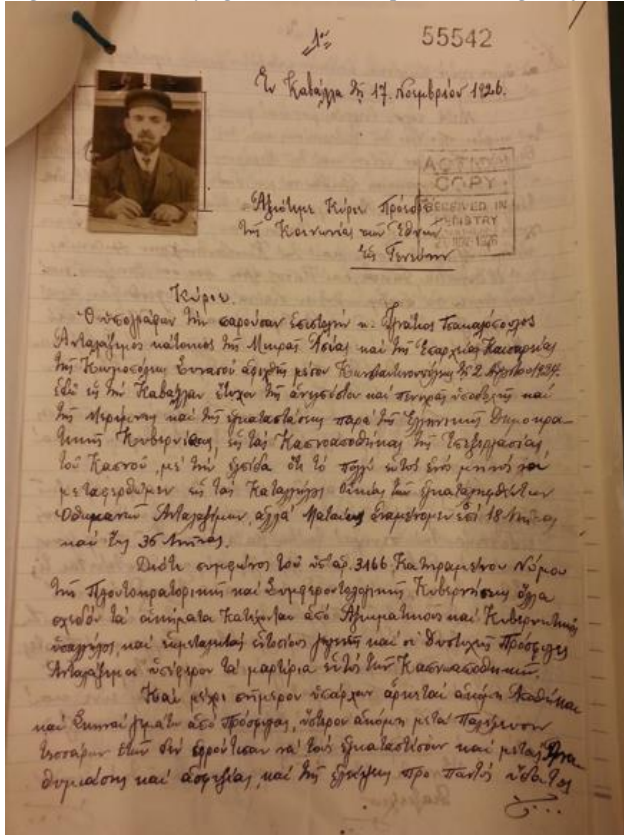 1ον
55542
Ἐν Καβάλλα τῇ 17. Νοεμβρίου 1926.
COPY
RECEIVED IN
REGISTRY
Ἀξιότιμε Κύριε Πρόεδρε
τῆς Κοινωνίας τῶν Ἐθνῶν
Εἰς Γενεύην
Κύριε.
Ὁ ὑπογράφων τὴν παροῦσαν ἐπιστολὴν κ. Ἰγνάτιος
Ἀνταλάξιμος κάτοικος τῆς Μικρᾶς Ἀσίας καὶ τῆς Ἐπαρχείας Καισαρείας
τῆς Κωμοπόλης Σινασοῦ ἀφιχθῆς μέσον Κωνσταντινουπόλης τῇ 2 1924.
ἐδῶ εἰς τὴν Καβάλλαν ἔτυχον τῆς καὶ πενιχρῆς ὑποδοχῆς καὶ
τῆς Μερίμνης καὶ τῆς ἐγκαταστάσεως παρὰ τῆς Ἑλληνικῆς Δημοκρα-
τικῆς Κυβερνήσεως, εἰς τὰς Καπναποθήκας τῆς Ἐπεξεργασίας
τοῦ Καπνοῦ, μὲ τὴν ἐλπίδα ὅτι τὸ πολὺ ἐντὸς ἑνὸς μηνὸς νὰ
μεταφερθῶμεν εἰς τὰς Καταλλήλος οἰκίας τῶν ἐγκαταλειφθέντων
Ὀθωμανικῶν Ἀνταλαξίμων, ἀλλὰ Ματαίως ἀναμένομεν ἐπὶ 18 Μῆνας
καὶ ἕως 36 Μῆνας.
Διότι συμφώνος τοῦ ὑπ' ἀρ. 3166 Κατηραμένου Νόμου
τῆς Πλουτοκρατορικῆς καὶ Συμφεροντολογικῆς Κυβερνήσεως ὅλλα
σχεδὸν τὰ οἰκήματα Κατέχονται ἀπὸ Ἀξιωματικοὺς καὶ Κυβερνητικοὺς
ὑπαλλήλος, καὶ ἐντοπίους καὶ οἱ Δυστυχῆς Πρόσφιγες
Ἀνταλάξιμοι ὑπέφερον τὰ μαρτύρια ἐντὸς τῶν Καπναποθηκῶν.
Καὶ μέχρι σήμερον ὑπάρχουν ἀρκεταὶ ἀκόμη Ἀποθῆκαι
καὶ Σκηναὶ γεμάται ἀπὸ Πρόσφιγας, ὕστερον ἀκόμη μετὰ Παρέλευσιν
τεσσάρων ἐτῶν δὲν ἐφρόντισαν νὰ τοὺς ἐγκαταστίσουν καὶ μετὰ
καὶ ἀσφιξίας, καὶ τῆς ἐλλείψης πρὸ παντὸς ὕδατος